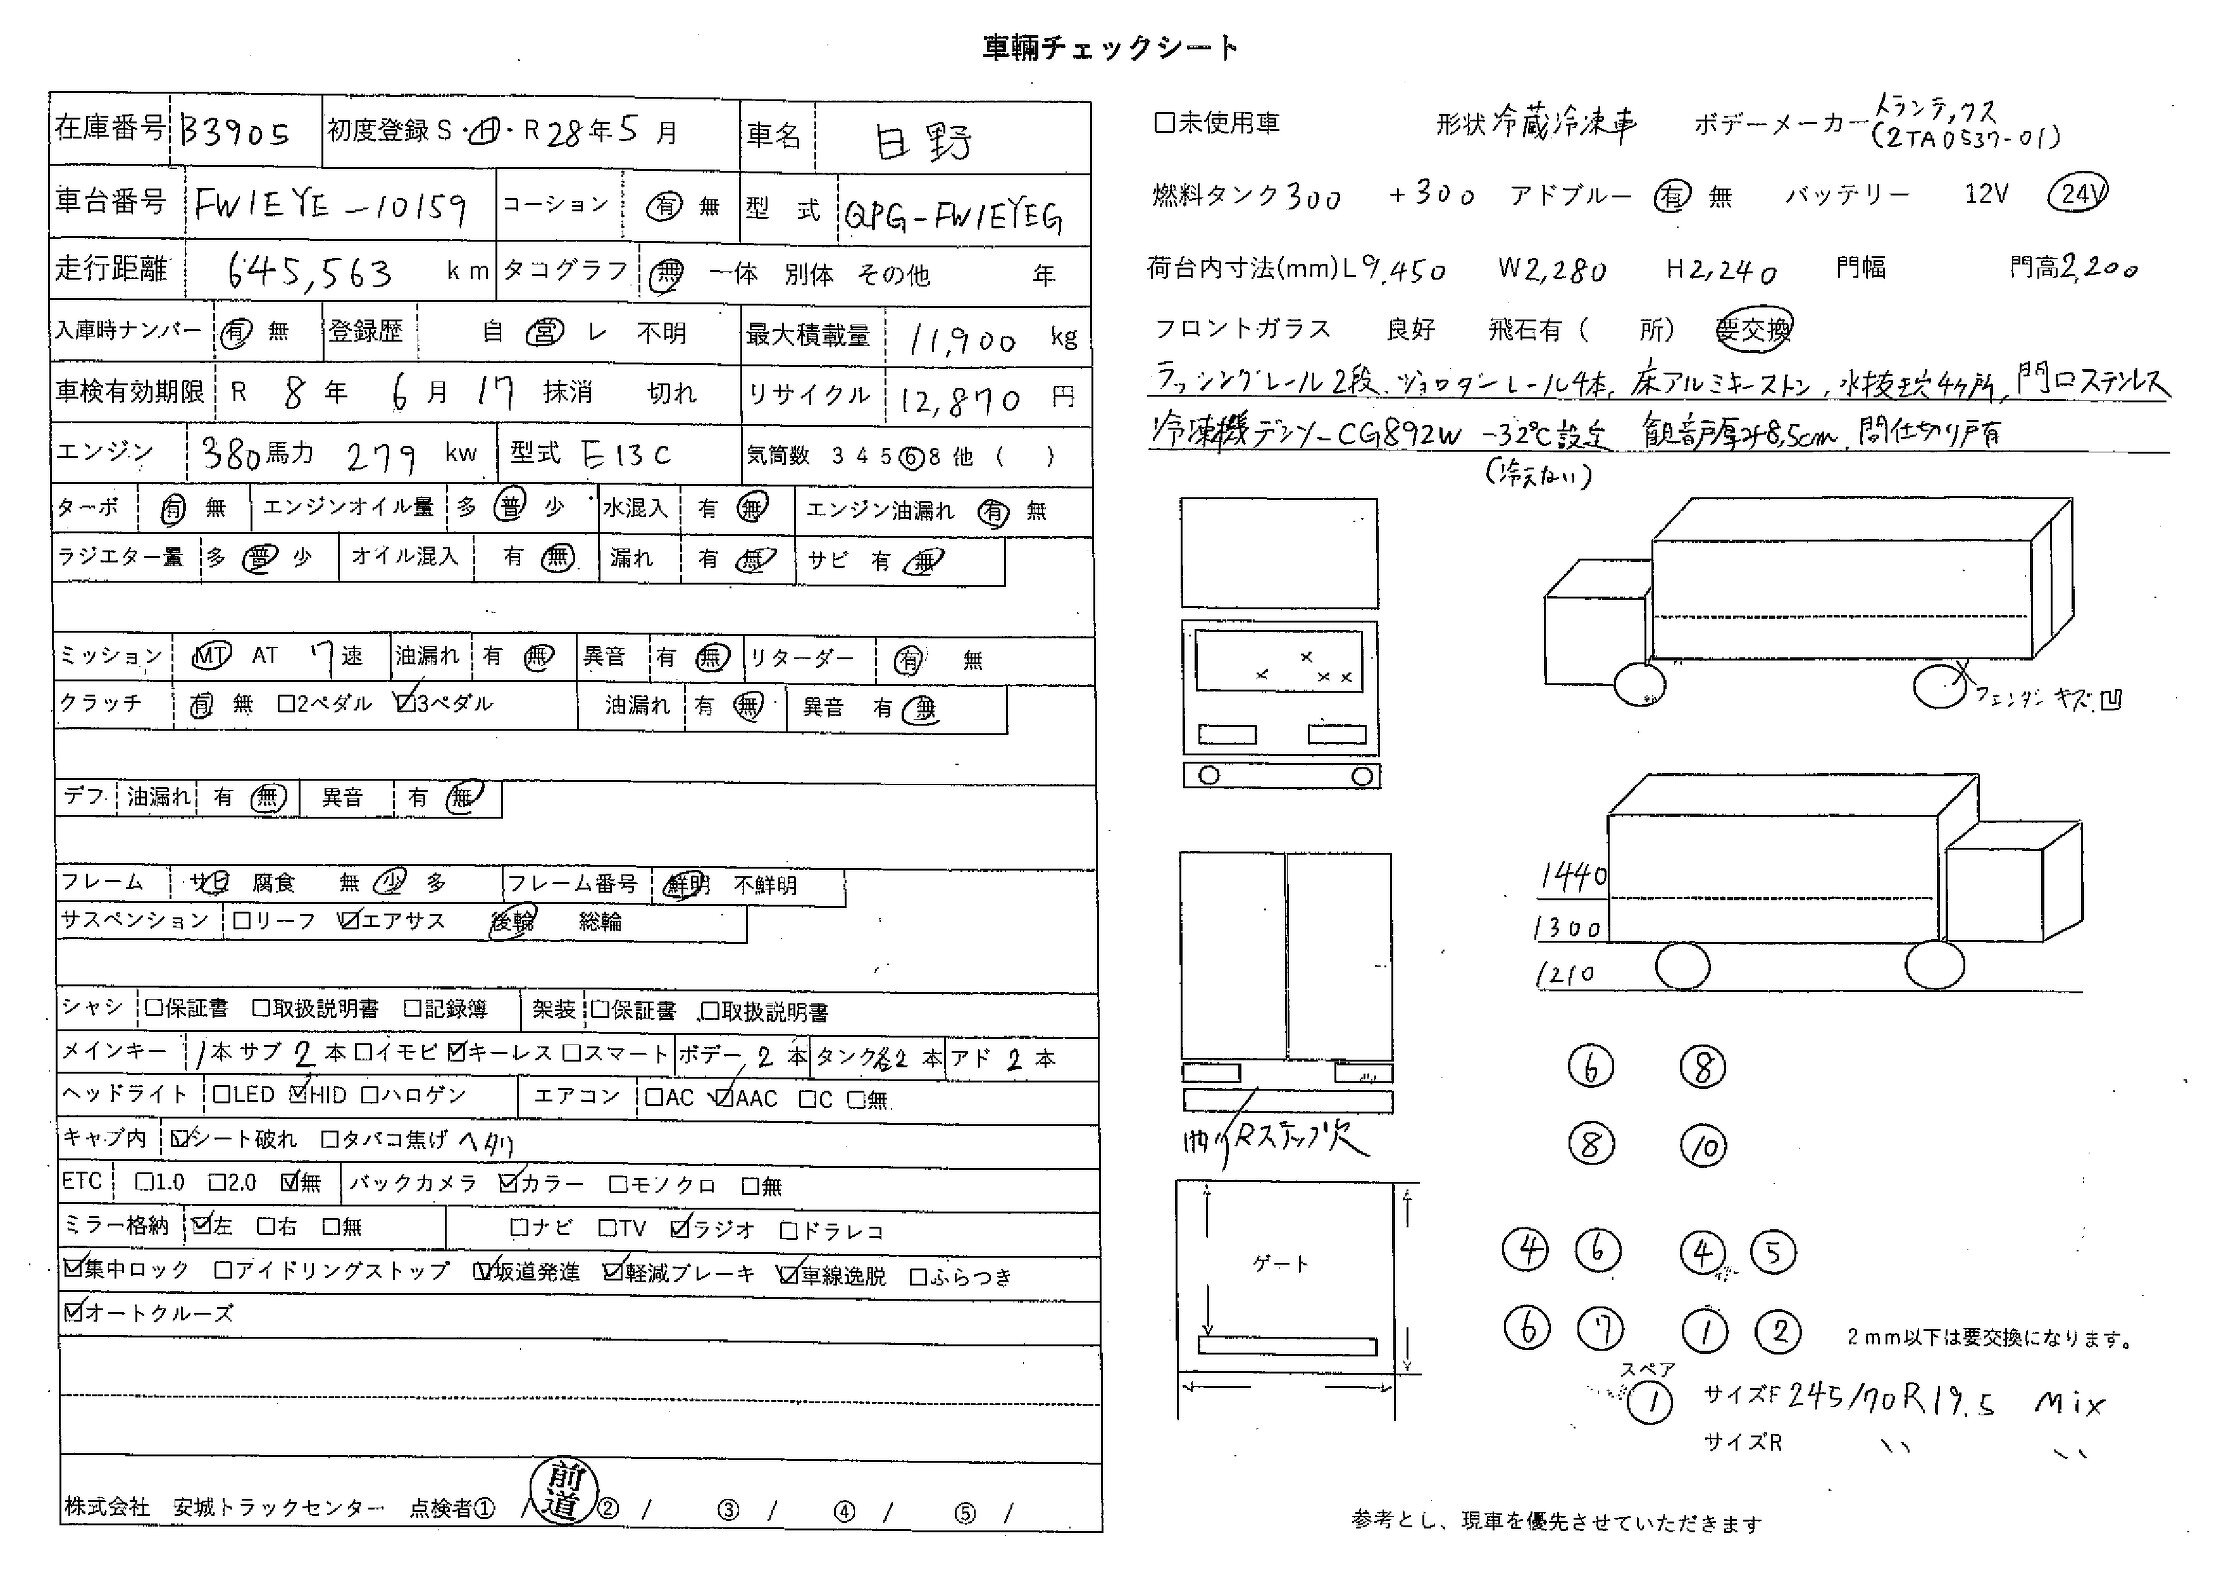 車輛チェックシート
在庫番号 B3905 初度登録 S・H・R 28年 5月 車名 日野
車台番号 FW1EYE-10159 コーション 有 無 型式 QPG-FW1EYEG
走行距離 645,563 km タコグラフ 無 一体 別体 その他 年
入庫時ナンバー 有 無 登録歴 自 営 レ 不明 最大積載量 11,900 kg
車検有効期限 R 8年 6月 17 抹消 切れ リサイクル 12,870 円
エンジン 380馬力 279 kw 型式 E13C 気筒数 3 4 5 6 8 他 ( )
ターボ 有 無 エンジンオイル量 多 普 少 水混入 有 無 エンジン油漏れ 有 無
ラジエター量 多 普 少 オイル混入 有 無 漏れ 有 無 サビ 有 無
ミッション MT AT 7速 油漏れ 有 無 異音 有 無 リターダー 有 無
クラッチ 有 無 □2ペダル ☑3ペダル 油漏れ 有 無 異音 有 無
デフ 油漏れ 有 無 異音 有 無
フレーム サビ 腐食 無 少 多 フレーム番号 鮮明 不鮮明
サスペンション □リーフ ☑エアサス 後輪 総輪
シャシ □保証書 □取扱説明書 □記録簿 架装 □保証書 □取扱説明書
メインキー 1本 サブ 2本 □イモビ ☑キーレス □スマート ボデー 2本 タンク各2本 アド 2本
ヘッドライト □LED ☑HID □ハロゲン エアコン □AC ☑AAC □C □無
キャブ内 ☑シート破れ □タバコ焦げ ヘタリ
ETC □1.0 □2.0 ☑無 バックカメラ ☑カラー □モノクロ □無
ミラー格納 ☑左 □右 □無 □ナビ □TV ☑ラジオ □ドラレコ
☑集中ロック □アイドリングストップ ☑坂道発進 ☑軽減ブレーキ ☑車線逸脱 □ふらつき
☑オートクルーズ
株式会社 安城トラックセンター 点検者① / 前道 ② / ③ / ④ / ⑤ /
□未使用車 形状 冷蔵冷凍車 ボデーメーカー トランテックス
(2TA0537-01)
燃料タンク 300 +300 アドブルー 有 無 バッテリー 12V 24V
荷台内寸法(mm) L9,450 W2,280 H2,240 門幅 門高2,200
フロントガラス 良好 飛石有 ( 所) 要交換
ラッシングレール2段、ジョロダーレール4本、床アルミキーストン、水抜き穴4ヶ所、門口ステンレス
冷凍機デンソーCG892W -32℃設定 観音戸厚み8,5cm、間仕切り戸有
(冷えない)
フェンダー キズ 凹
1440
1300
1210
曲り Rステップ欠
⑥ ⑧
⑧ ⑩
ゲート
④ ⑥ ④ ⑤
⑥ ⑦ ① ②
2mm以下は要交換になります。
スペア
① サイズF 245/70R19.5 Mix
サイズR 〃 〃
参考とし、現車を優先させていただきます